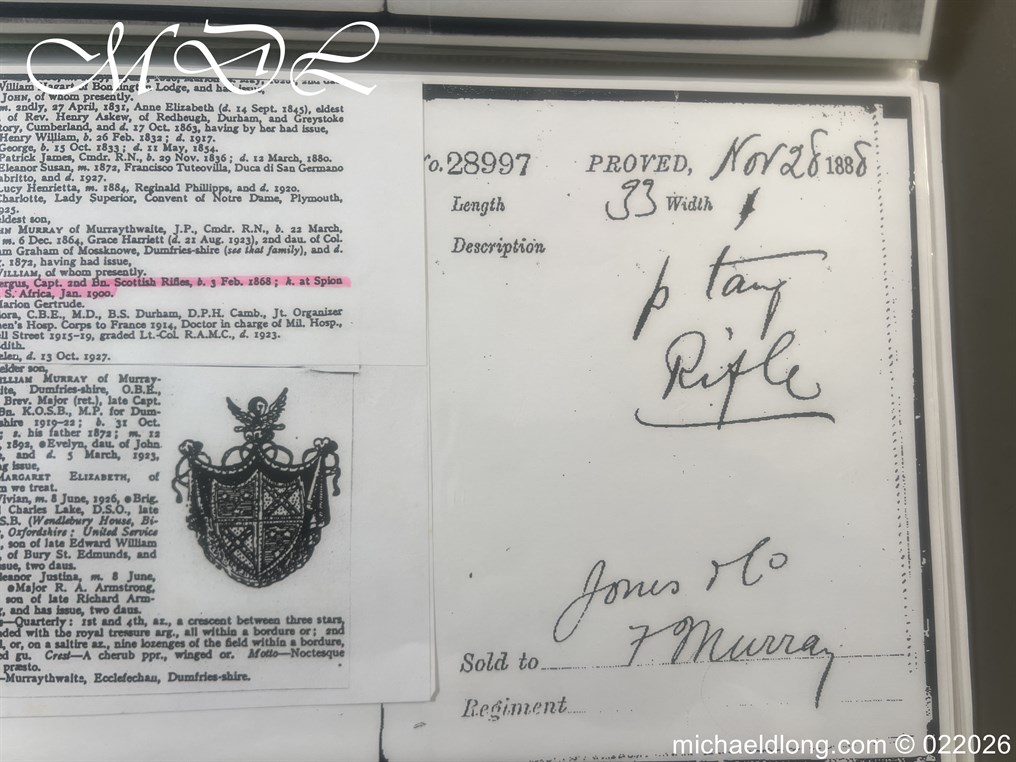 MDL
William Hagart of Bonnington Lodge, and has issue,
JOHN, of whom presently.
m. 2ndly, 27 April, 1831, Anne Elizabeth (d. 14 Sept. 1845), eldest
of Rev. Henry Askew, of Redheugh, Durham, and Greystoke
tory, Cumberland, and d. 17 Oct. 1863, having by her had issue,
Henry William, b. 26 Feb. 1832; d. 1917.
George, b. 15 Oct. 1833; d. 11 May, 1854.
Patrick James, Cmdr. R.N., b. 29 Nov. 1836; d. 12 March, 1880.
Eleanor Susan, m. 1872, Francisco Tuteovilla, Duca di San Germano
abritto, and d. 1927.
Lucy Henrietta, m. 1884, Reginald Phillipps, and d. 1920.
Charlotte, Lady Superior, Convent of Notre Dame, Plymouth,
925.
eldest son,
HN MURRAY of Murraythwaite, J.P., Cmdr. R.N., b. 22 March,
m. 6 Dec. 1864, Grace Harriett (d. 21 Aug. 1923), 2nd dau. of Col.
am Graham of Mossknowe, Dumfries-shire (see that family), and d.
, 1872, having had issue,
WILLIAM, of whom presently.
ergus, Capt. 2nd Bn. Scottish Rifles, b. 3 Feb. 1868; k. at Spion
S. Africa, Jan. 1900.
Marion Gertrude.
lora, C.B.E., M.D., B.S. Durham, D.P.H. Camb., Jt. Organizer
men's Hosp. Corps to France 1914, Doctor in charge of Mil. Hosp.,
ell Street 1915-19, graded Lt.-Col. R.A.M.C., d. 1923.
dith.
elen, d. 13 Oct. 1927.
elder son,
ILLIAM MURRAY of Murray-
ite, Dumfries-shire, O.B.E.,
Brev. Major (ret.), late Capt.
Bn. K.O.S.B., M.P. for Dum-
shire 1919-22; b. 31 Oct.
; s. his father 1872; m. 12
, 1892, Evelyn, dau. of John
, and d. 5 March, 1923,
ng issue,
MARGARET ELIZABETH, of
m we treat.
Vivian, m. 8 June, 1926, Brig.
Charles Lake, D.S.O., late
S.B. (Wendlebury House, Bi-
, Oxfordshire; United Service
, son of late Edward William
, of Bury St. Edmunds, and
sue, two daus.
eanor Justina, m. 8 June,
Major R. A. Armstrong,
son of late Richard Arm-
g, and has issue, two daus.
—Quarterly: 1st and 4th, az., a crescent between three stars,
ded with the royal tressure arg., all within a bordure or; 2nd
, or, on a saltire az., nine lozenges of the field within a bordure,
ed gu. Crest—A cherub ppr., winged or. Motto—Noctesque
præsto.
—Murraythwaite, Ecclefechan, Dumfries-shire.
o. 28997 PROVED, Nov 28 1888
Length 33 Width
Description
p tang
Rifle
Jones & Co
Sold to F Murray
Regiment
michaeldlong.com © 022026